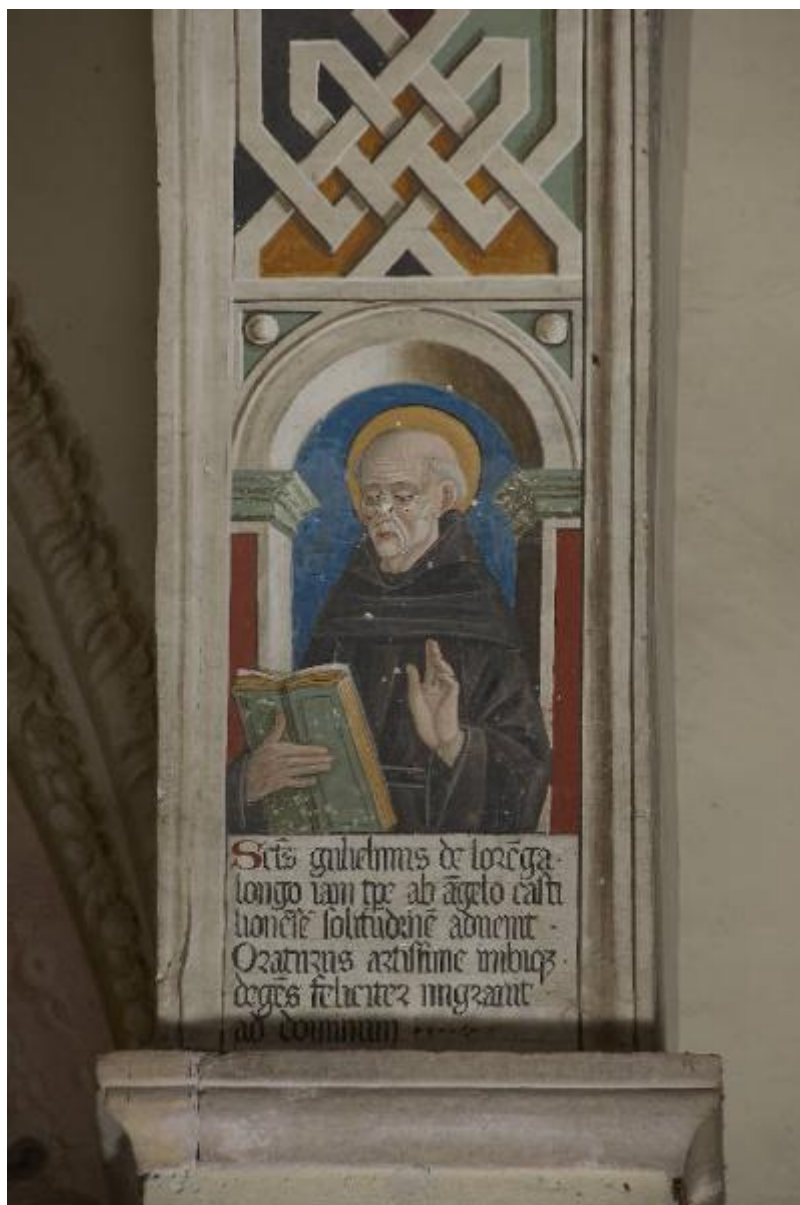 Sctṡ gulielmus de lorēga·
longo iam tpe ab āgelo casti
lionēsē solitudinē aduenit ·
Oraturus artissime inibiqꝫ ·
degēs feliciter migrauit
ad dominum